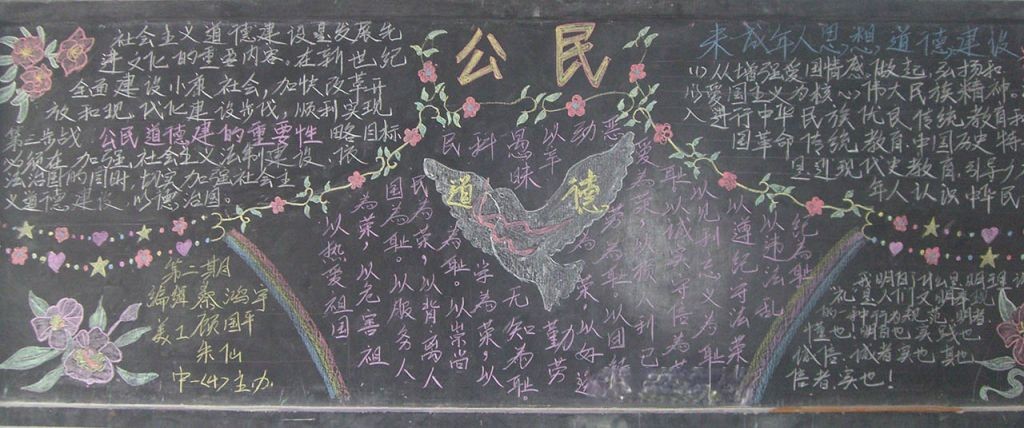 公民
道德
社会主义道德建设是发展先
进文化的重要内容。在新世纪
全面建设小康社会，加快改革开
放和现代化建设步伐，顺利实现
第三步战略目标
公民道德建的重要性
必须在加强社会主义法制建设、依
法治国的同时，切实加强社会主
义道德建设、以德治国。
第二期
编辑 秦鸿宇
美工 顾国平
朱仙
中一<4>主办
以热爱祖国
为荣，以危害祖
国为耻。以服务人
民为荣，以背离人
民为耻。以崇尚
科学为荣，以
愚昧无知为耻。
以辛勤劳
动为荣，以好逸
恶劳为耻，以团结
互爱为荣，以损人利己
为耻，以诚实守信为
荣，以见利忘义为耻
以遵纪守法为荣
以违法乱
纪为耻
未成年人思想道德建设
(1)从增强爱国情感做起，弘扬和
以爱国主义为核心伟大民族精神。
入进行中华民族优良传统教育
国革命传统教育，中国历史特
是近现代史教育，引导
年人认识中华民
我明白什么是明理
礼是人们
的一种行为规范，明者
懂也！明白也。实诚也
诚信。诚者实也。其他
信者，实也！